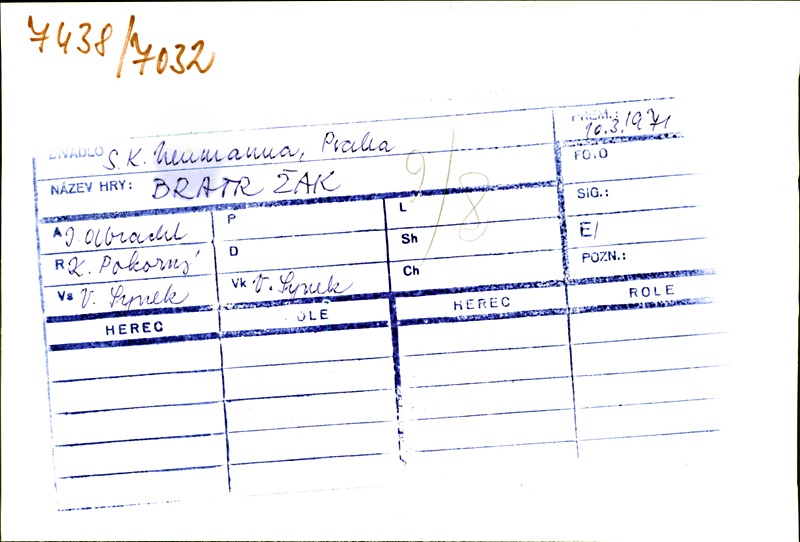 7438/7032
PREM.:
DIVADLO S. K. Neumanna, Praha 16.3.1971
NÁZEV HRY: BRATR ŽAK
FO.O
SIG.:
A I. Olbracht P L
E/
R K. Pokorný D Sh
POZN.:
Vs V. Synek Vk V. Synek Ch
9/8
HEREC OLE HEREC ROLE